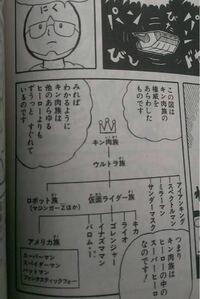 にく
この図は
キン肉族の
権威を
あらわした
ものです
みれば
わかるように
キン肉族は
他のあらゆる
ヒーローよりも
ずうっと すぐれて
いるのです
キン肉族
ウルトラ族
ロボット族
(マジンガーZほか)
仮面ライダー族
アイアンキング
スペクトルマン
ミラーマン
サンダーマスク
キカイダー
ライオン丸
ゴレンジャー
イナズマン
バロム・1
アメリカ族
スーパーマン
スパイダーマン
バットマン
ファンタスティックフォー
つまり
キン肉族は
ヒーローの中の
スーパーヒーロー
なのです!